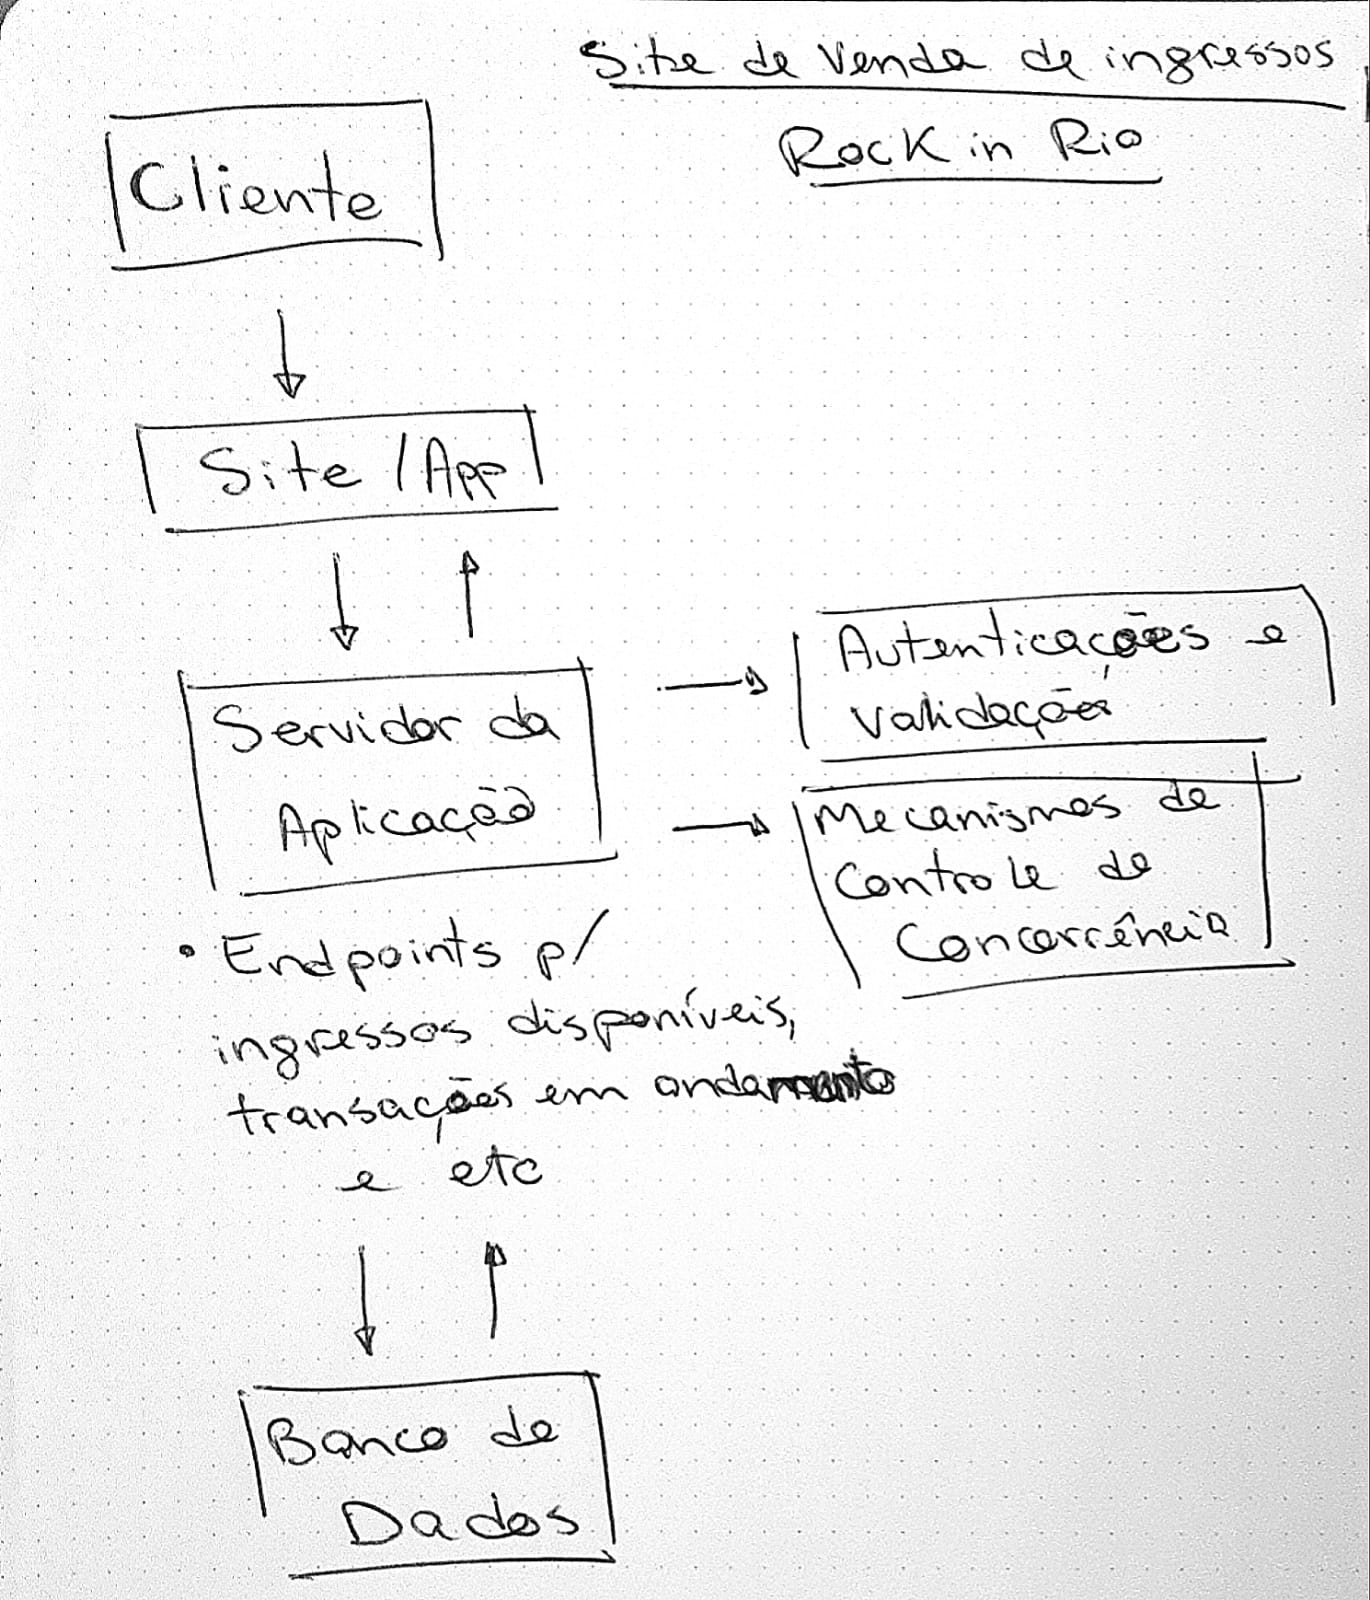 Site de Venda de ingressos
Rock in Rio
Cliente
Site / App
Servidor da
Aplicação
Autenticações e
validações
Mecanismos de
Controle de
Concorrência
• Endpoints p/
ingressos disponíveis,
transações em andamento
e etc
Banco de
Dados